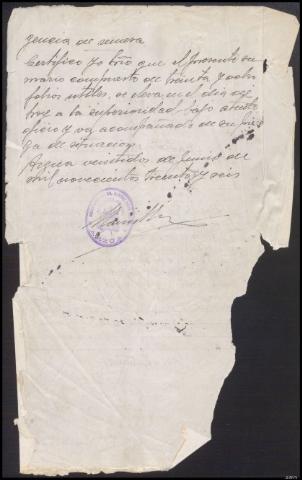 gencia de remesa
Certifico yo Srio que el presente su
mario compuesto de treinta y ocho
folios utiles se eleva en el dia de
hoy a la superioridad bajo atento
oficio y va acompañado de su pie
za de situacion
Azpua veintidos de Junio de
mil novecientos treinta y seis